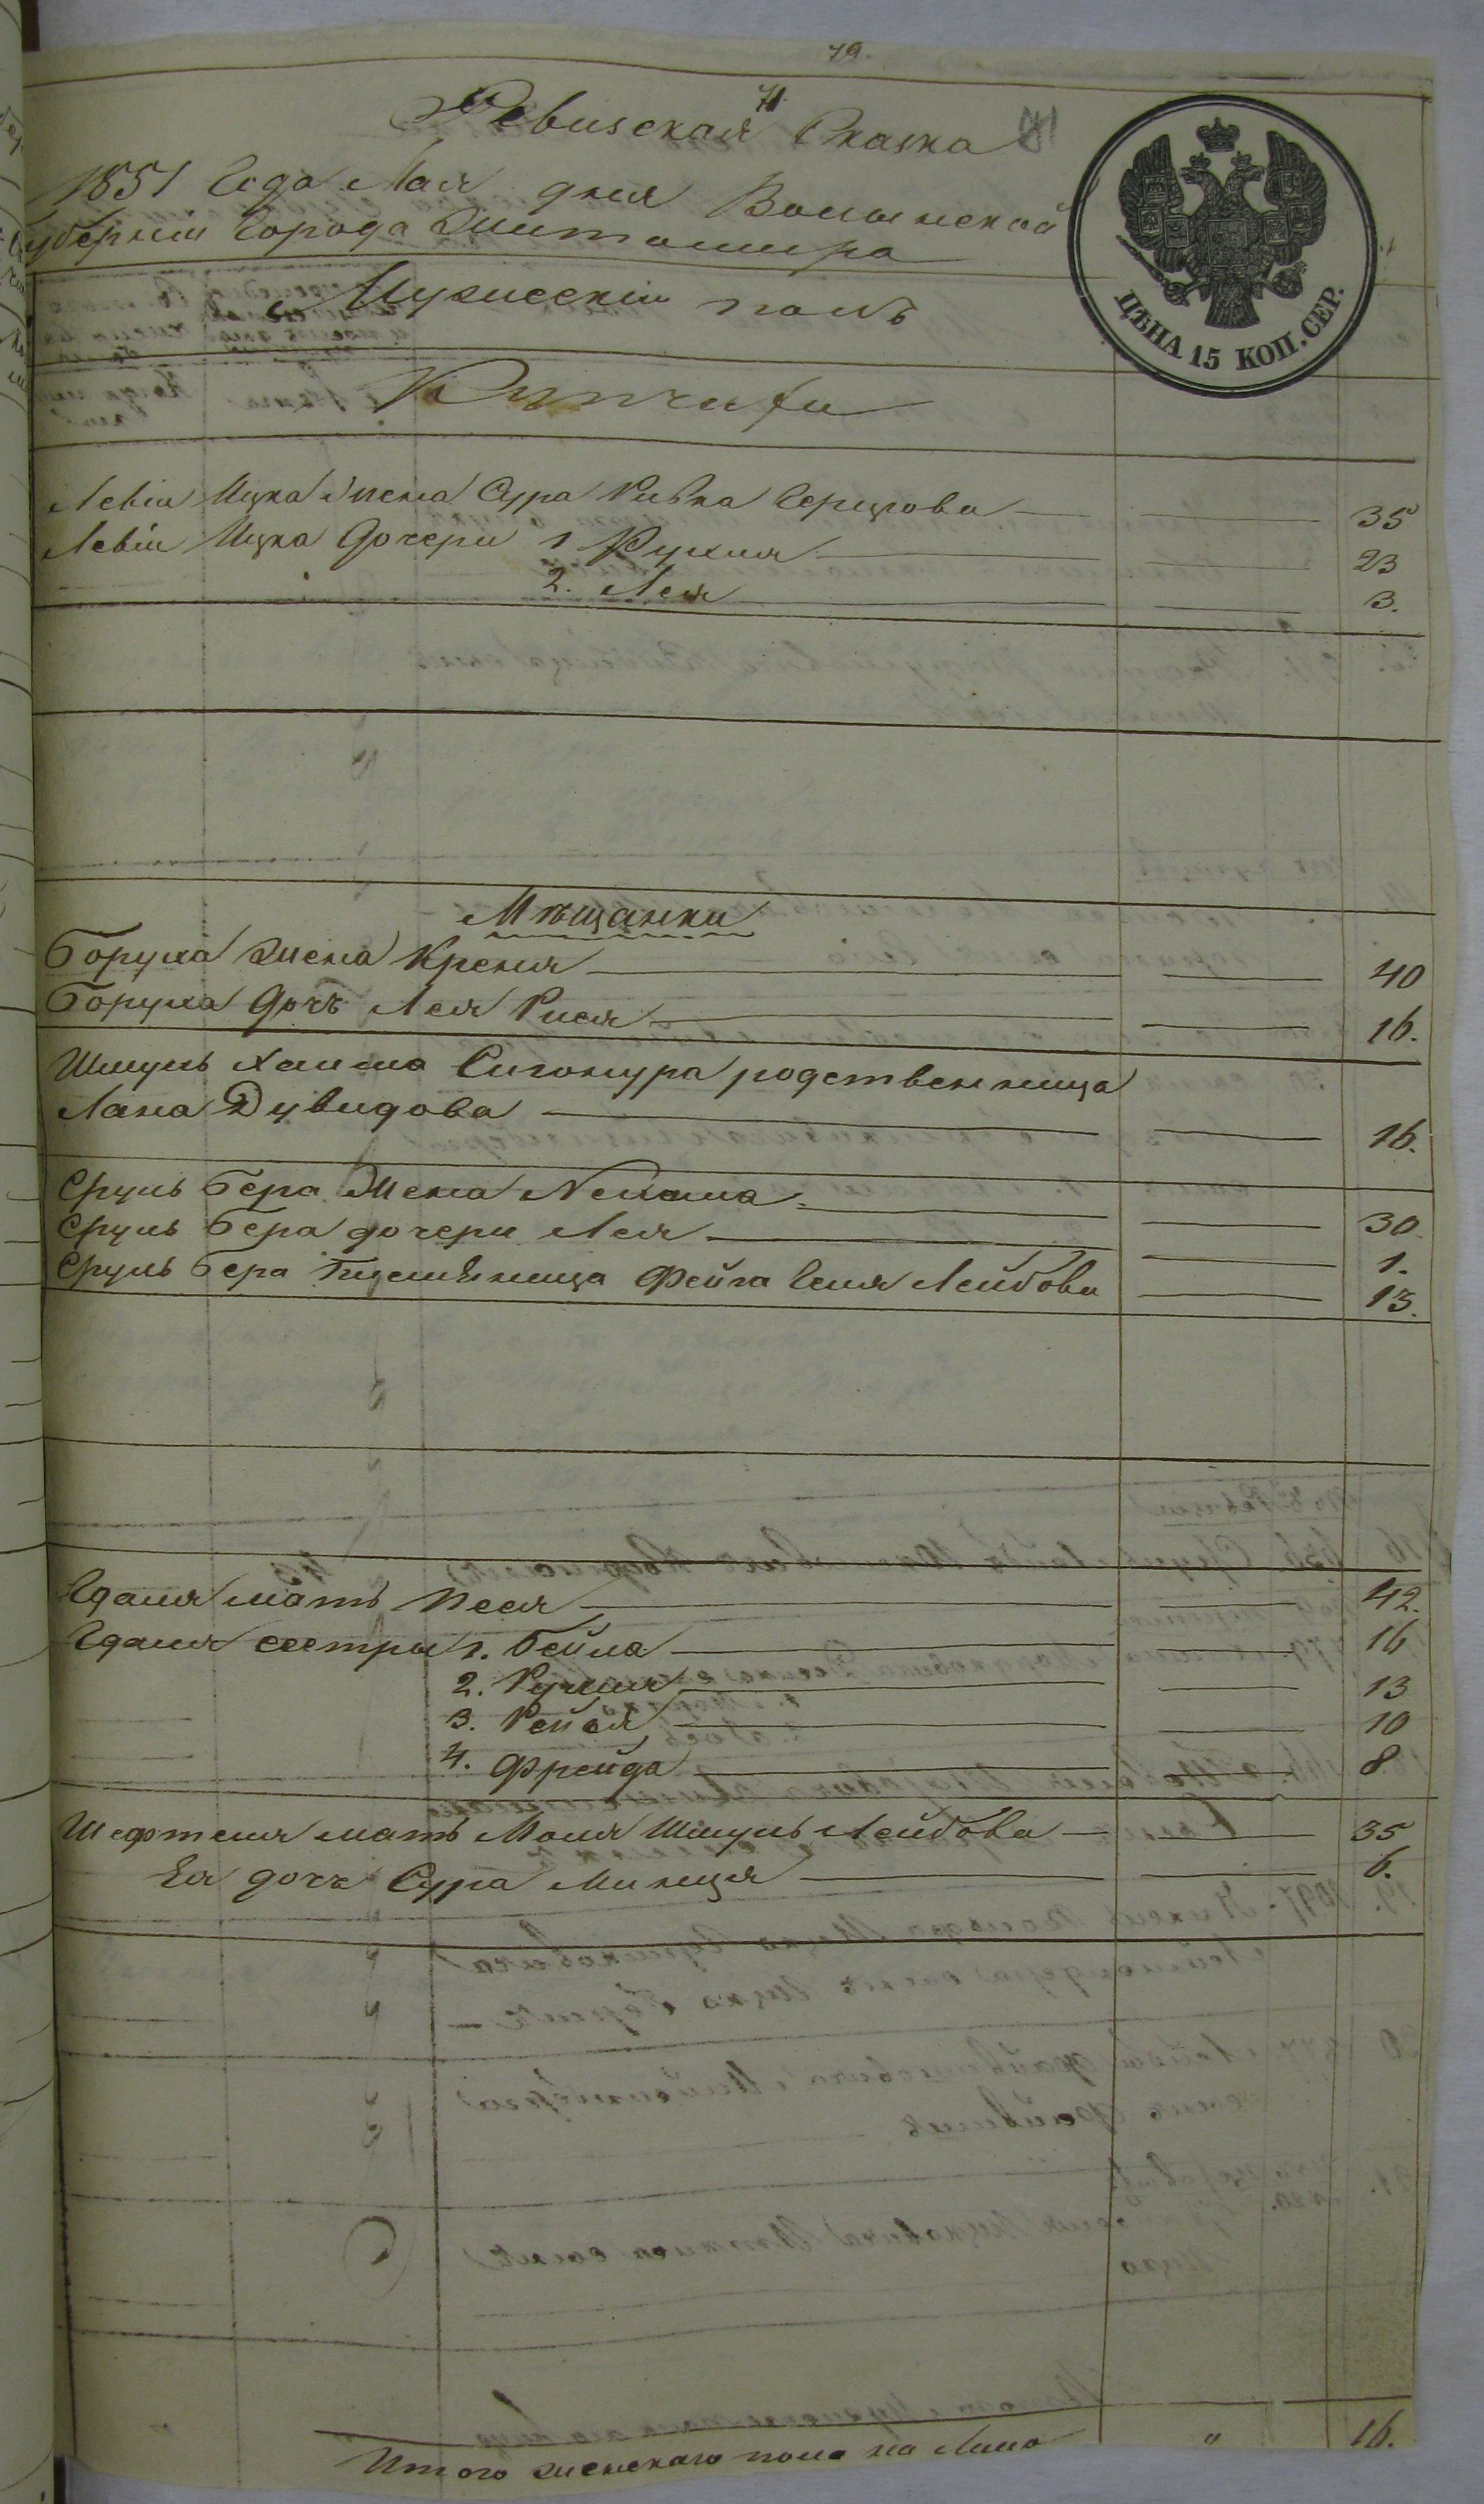 79.
71.
Ревизская Сказка
1851 Года Мая дня Волынской
Губерніи Города Житомира
ЦѢНА 15 КОП. СЕР.
Мужескій полъ
Купчихи
Левіи Ицка жена Сура Ривка Герцова 35
Левіи Ицка Дочери 1 Рухля 23
2. Лея 3.
Мѣщанки
Боруха жена Крейня 40
Боруха Дочь Лея Рися 16.
Шмуль Хаима родственница
Лана Дувидова 16.
Сруль Бера Жена Нехама 30
Сруль Бера дочери Лея 1.
Сруль Бера Племѣница Фейга Геня Лейбова 13.
Гдаля мать Песя 42.
Гдаля сестры 1. Бейла 16
2. Рухля 13
3. Рейзя 10
4. Фрейда 8
Шефтеля мать Маля Шмуль Лейбова 35
Ея дочь Сура Минця 6.
Итого женскаго пола на Лицо " 16.